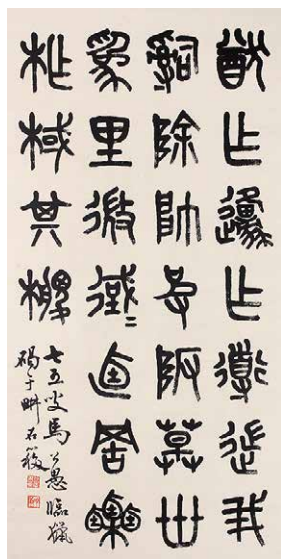 猷乍邍乍導遄我
嗣除帥皮阪莫卅
為里微卣罟栗
柞棫其椶
七五叟馬公愚臨獵
碣于畊石簃